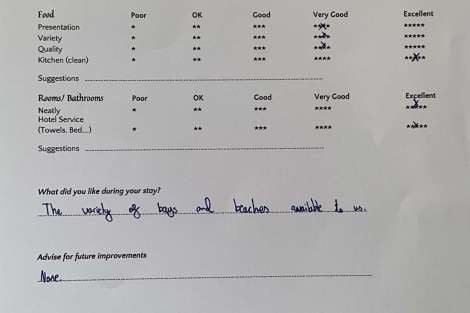 Food Poor OK Good Very Good Excellent
Presentation * ** *** **** *****
Variety * ** *** **** *****
Quality * ** *** **** *****
Kitchen (clean) * ** *** **** *****
Suggestions
Rooms/ Bathrooms Poor OK Good Very Good Excellent
Neatly * ** *** **** *****
Hotel Service
(Towels, Bed...) * ** *** **** *****
Suggestions
What did you like during your stay?
The variety of bays and beaches available to us.
Advise for future improvements
None.